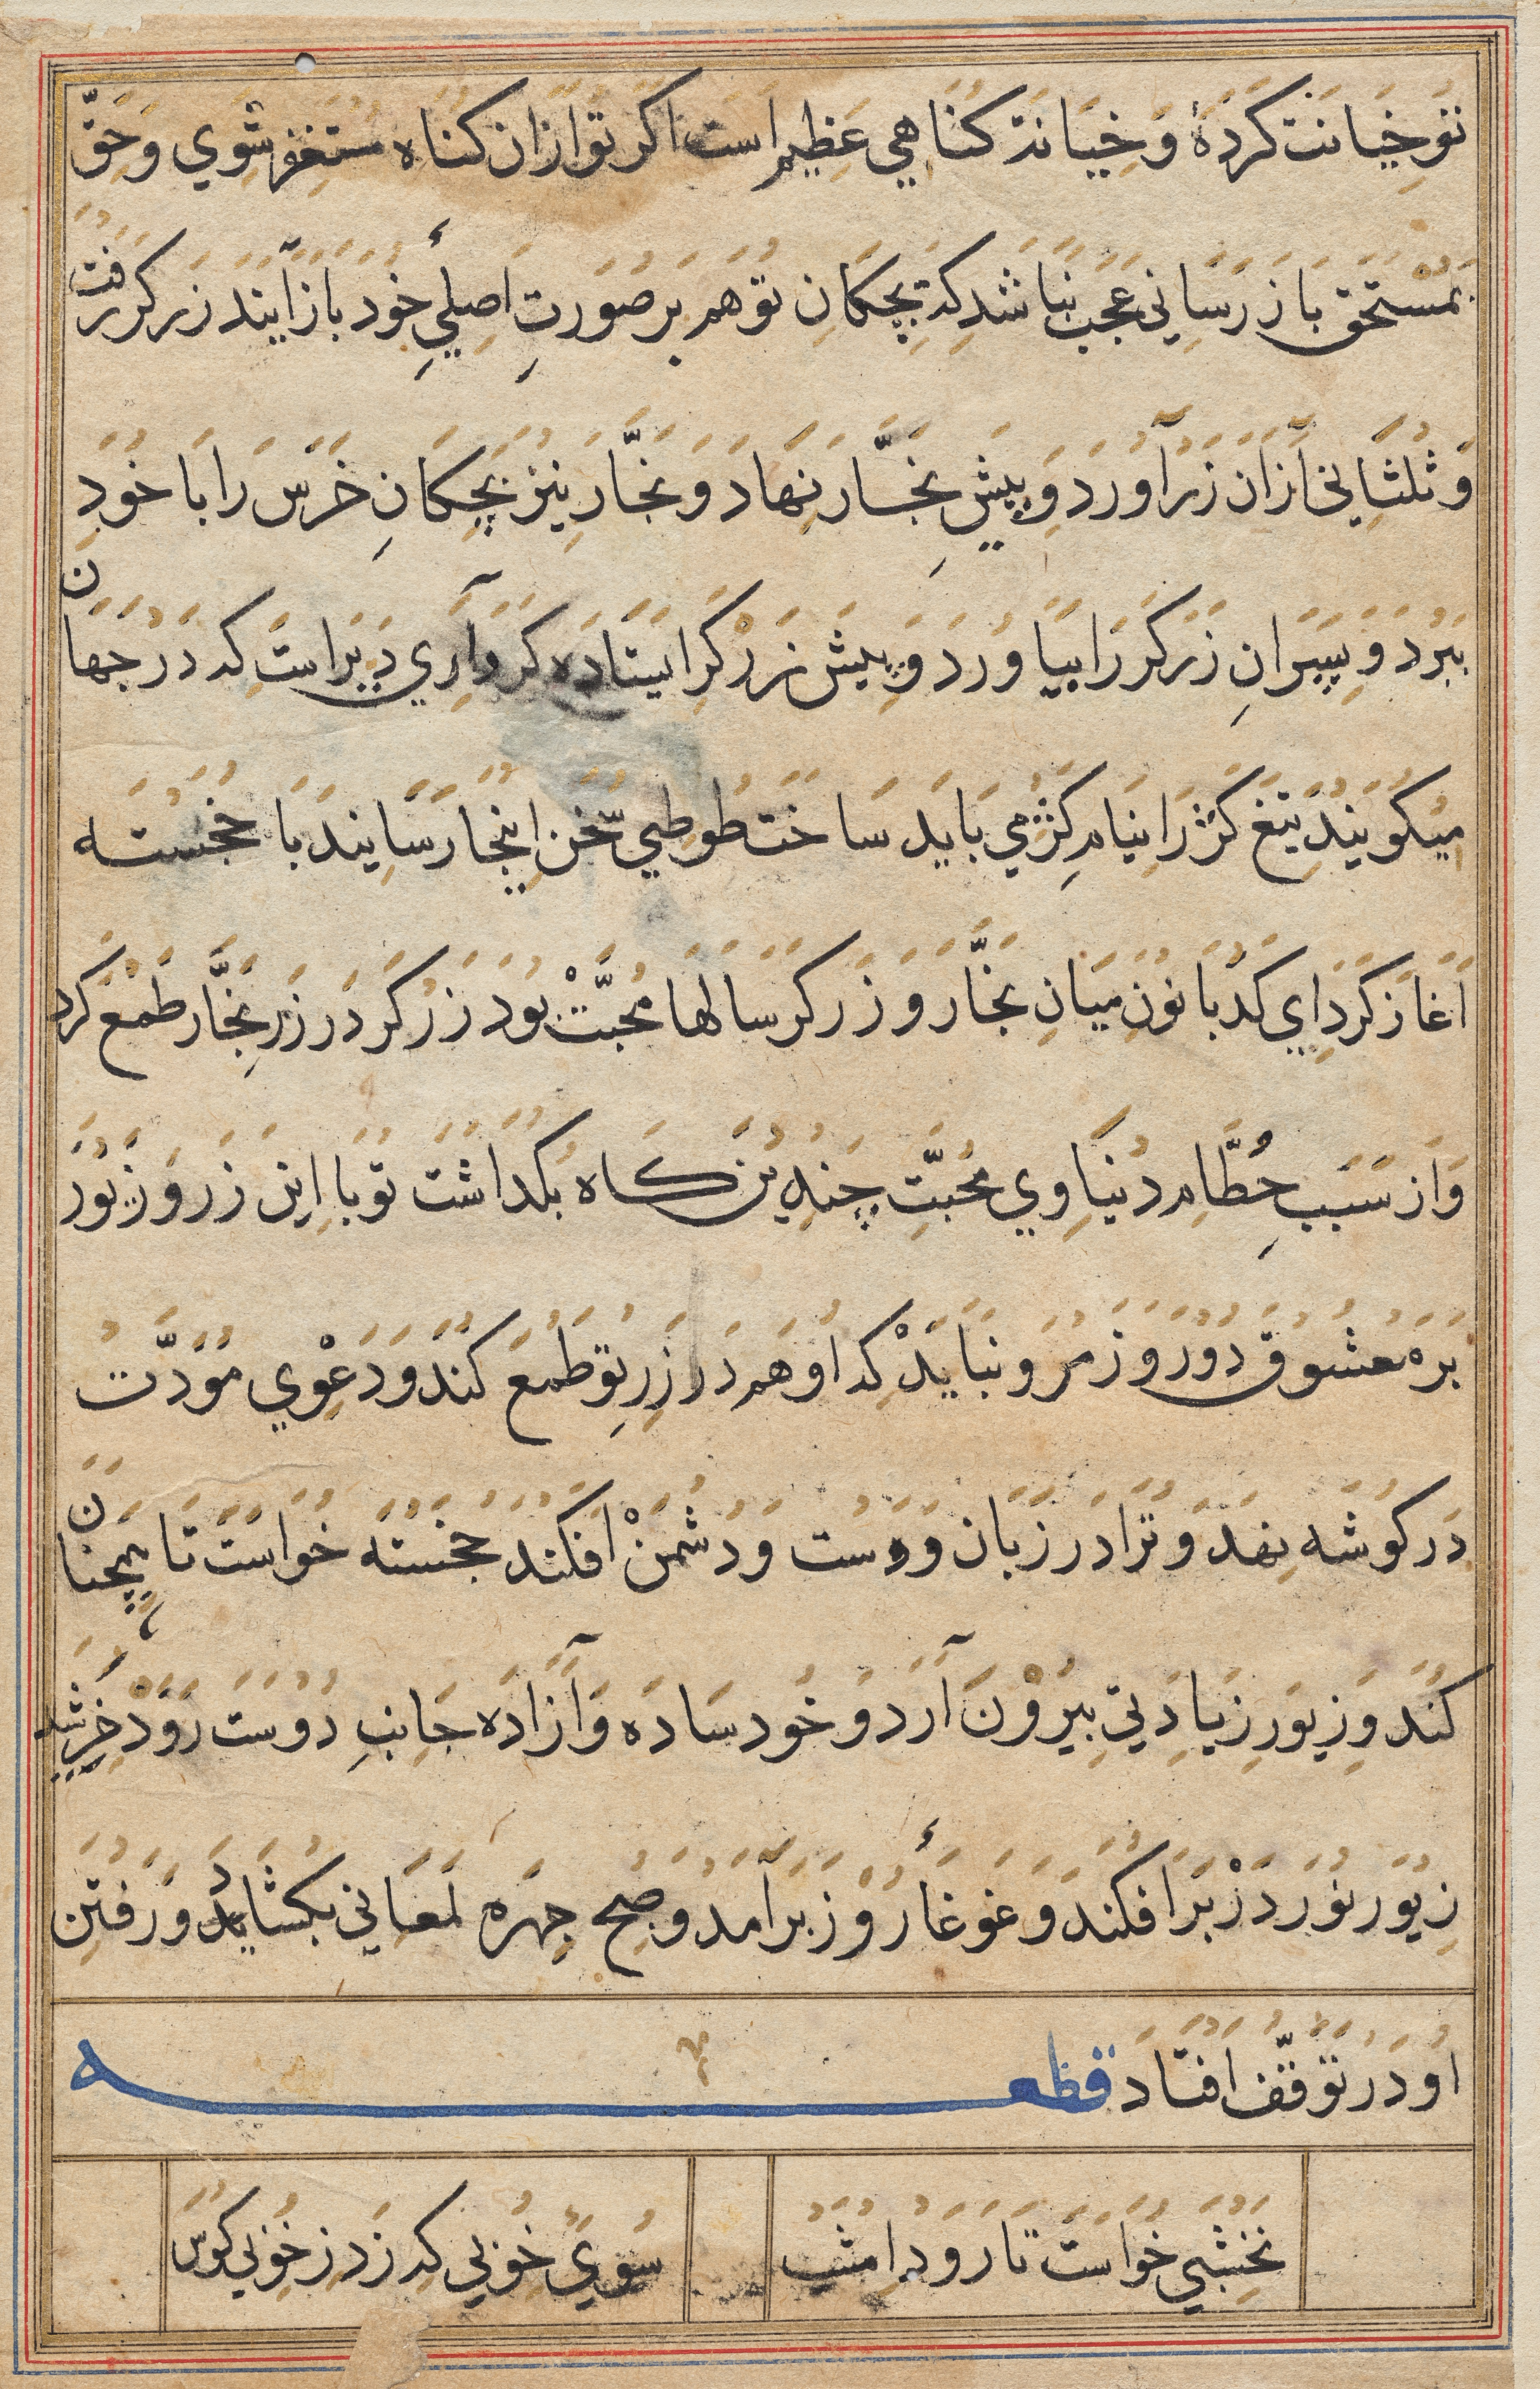 تو خیانت کردهٔ و خیانت کناهی عظیم است اکر تو ازان کناه مستغفر شوی و حقّ
بمستحق باز رسانی عجب نباشد که بچکان تو هم بر صورتِ اصلیِٔ خود باز آیند زرکر رفت
و ثلثانی ازان زر آورد و پیشِ نجّار نهاد و نجّار نیز بچکانِ خرس را با خود
ببرد و پسرانِ زرکر را بیاورد و پیش زرکر ایستاده کرد آری دیر است که در جهان
میکویند تیغ کژ را نیام کژ می باید ساخت طوطی سخن اینجا رسانید با خجسته
آغاز کرد ای کدبانو میانِ نجّار و زرکر سالها محبّتْ بود زرکر در زرِ نجّار طمع کرد
و از سبب حُطّام دنیاوی محبّتِ چندین کاه بکداشت تو با این زر و زیور
بره معشوق دو روز مرو نبایدْ که او هم در زرِ تو طمع کند و دعْوی مودّت
در کوشه نهد و ترا در زبان دوست و دشمنْ افکند خجسته خواست تا همچنان
کند و زیورِ زیادتی بیرون آرد و خود ساده و آزاده جانبِ دوست رودْ خرشید
زیور نور دزْ بر افکند و غوغاءِ روز برآمد و صبح چهره لمعانی بکشاید و رفتن
او در توقّف افتاد قطعه
نخشبی خواست تا رود امشب سوی خوبی که زد ز خوبی کوس